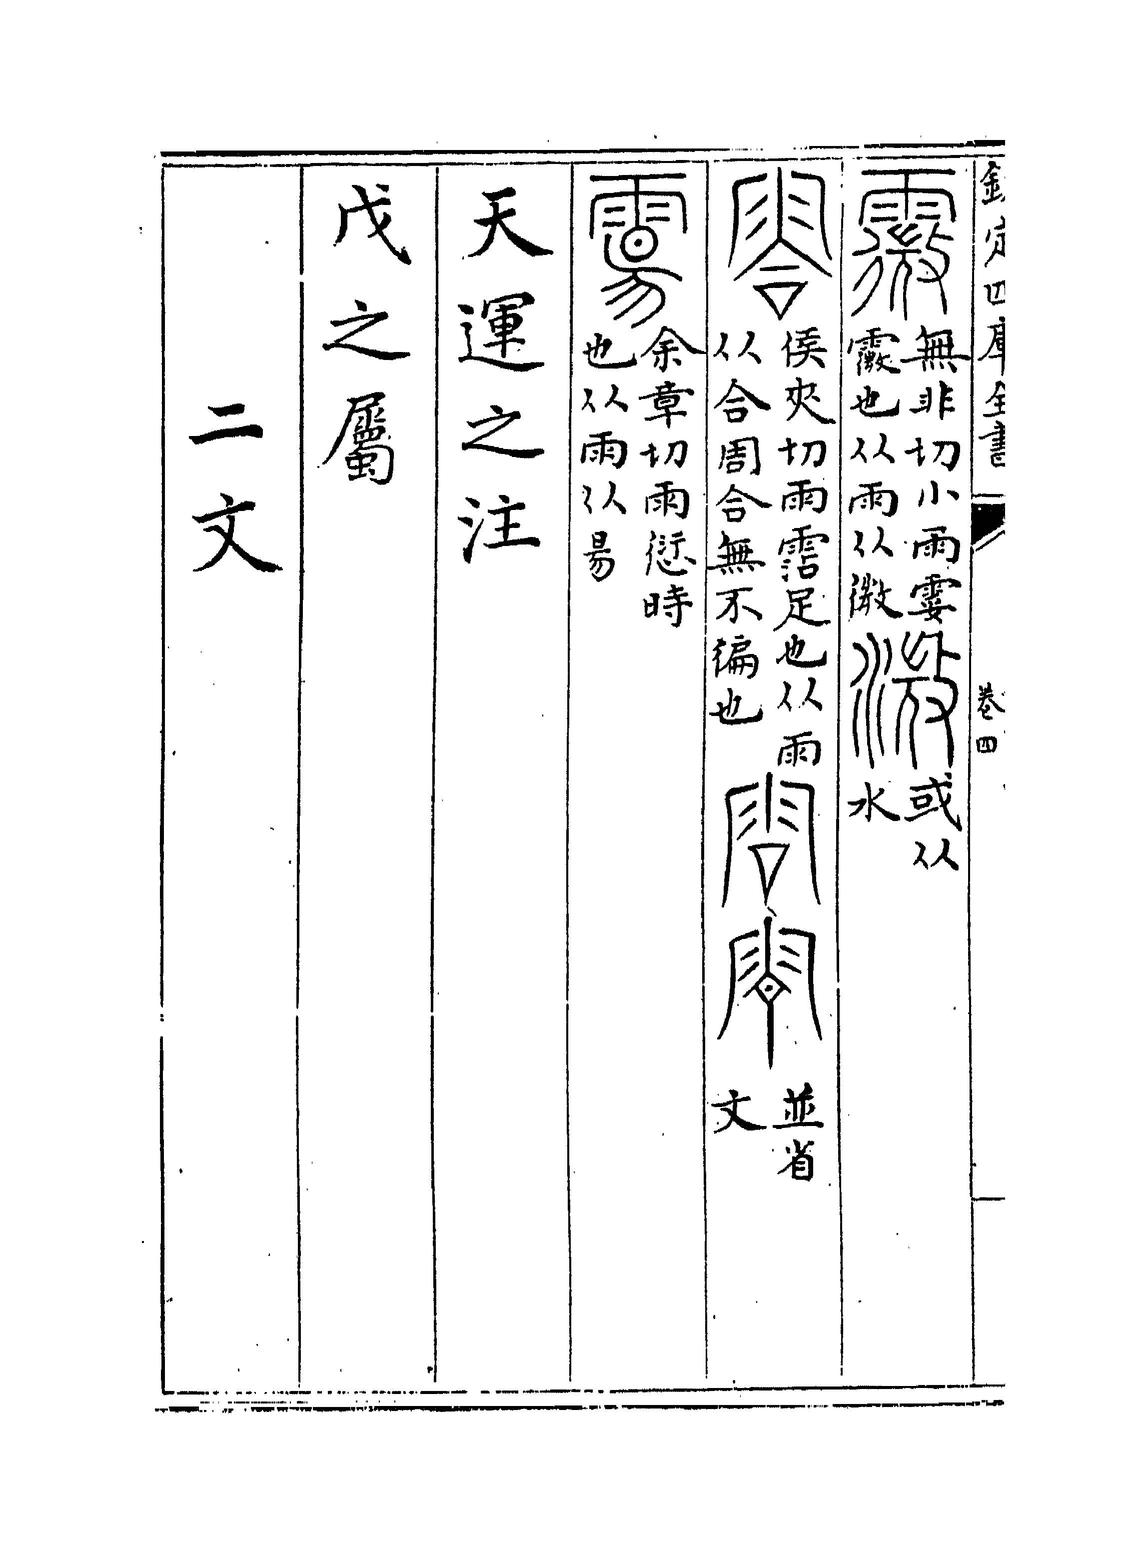 欽定四庫全書 卷四
霺 無非切小雨霎
霺也从雨从微 溦 或从
水
侯夾切雨霑足也从雨
从合周合無不徧也 並省
文
余章切雨愆時
也从雨从昜
天運之注
戊之屬
二文